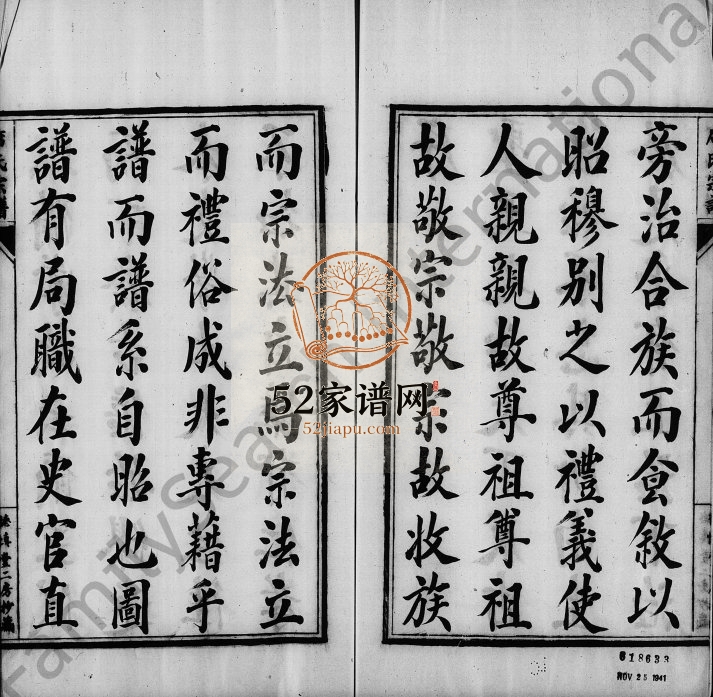 旁治合族而食敘以
昭穆別之以禮義使
人親親故尊祖尊祖
故敬宗敬宗故收族
而宗法立焉宗法立
而禮俗成非專藉乎
譜而譜系自昭也圖
譜有局職在史官直
52家谱网
52jiapu.com
FamilySearch International
618633
NOV 25 1941